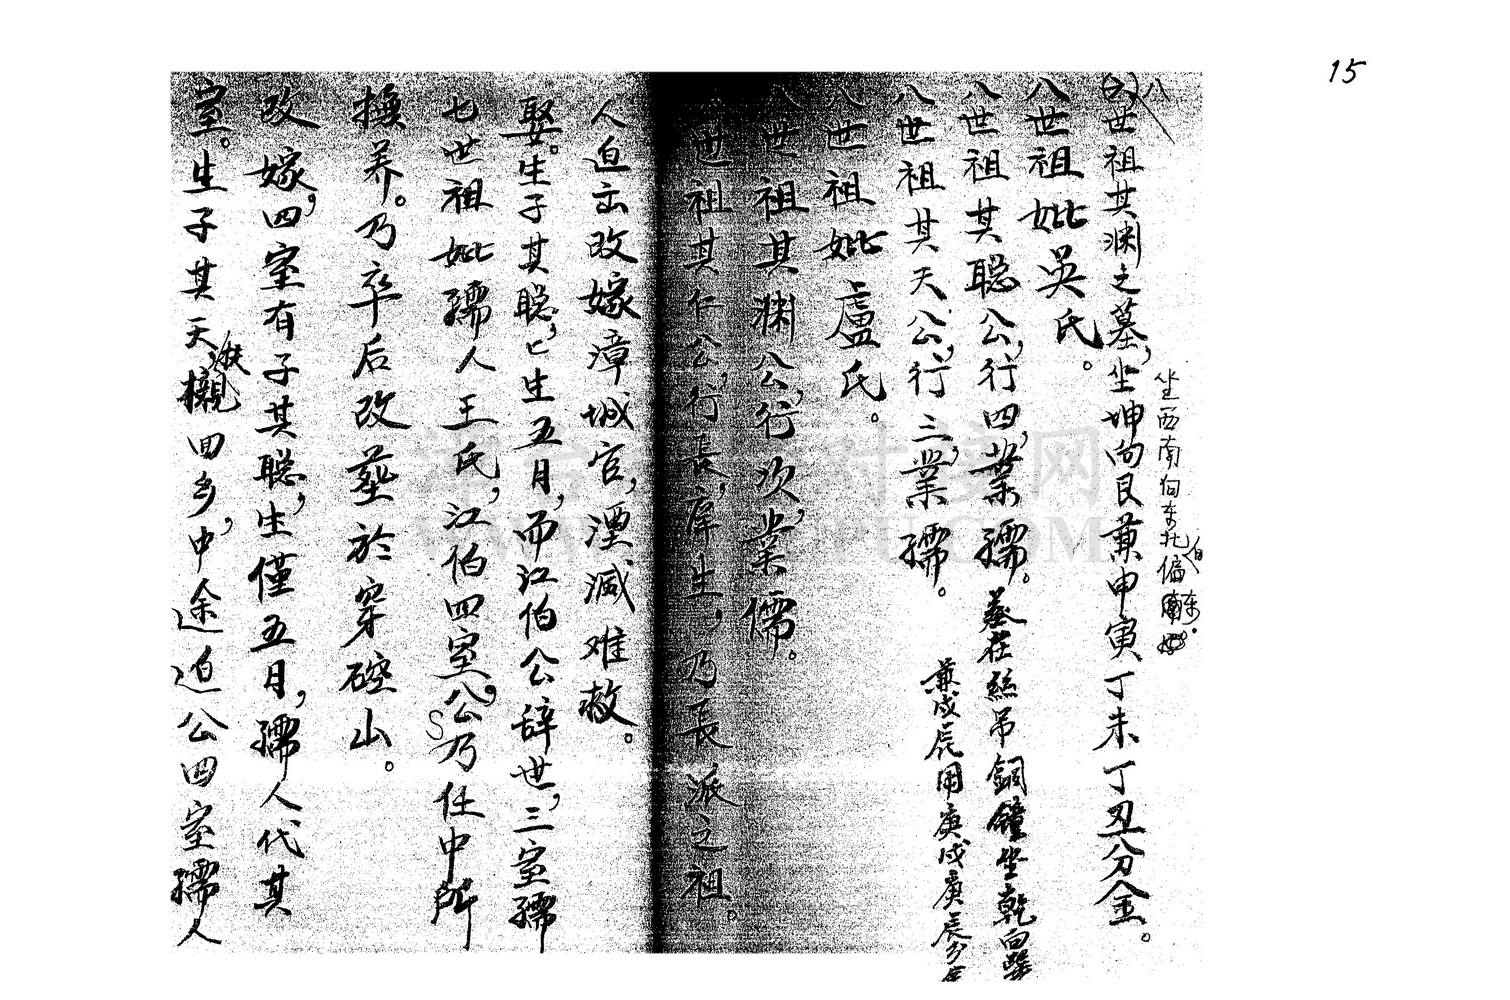 15
八世祖其渊之墓，坐坤向艮兼申寅丁未丁丑分金。
坐西南向东北偏
八世祖妣吳氏。
八世祖其聪公，行四，業孺。葬在絲吊銅鐘坐乾向巽
兼戍辰用庚戍庚辰分金
八世祖其天公，行三，業孺。
八世祖妣盧氏。
八世祖其渊公，行次，業儒。
世祖其仁公，行長，庠生，乃長派之祖。
人迫击改嫁漳城官，湮滅难救。
娶。生子其聪，生五月，而江伯公辞世，三室孺
七世祖妣孺人王氏，江伯四室，公乃任中所
撫养。乃卒后改葬於穿碚山。
改嫁，四室有子其聪，生僅五月，孺人代其
室。生子其天，櫬回乡，中途迫公四室孺人